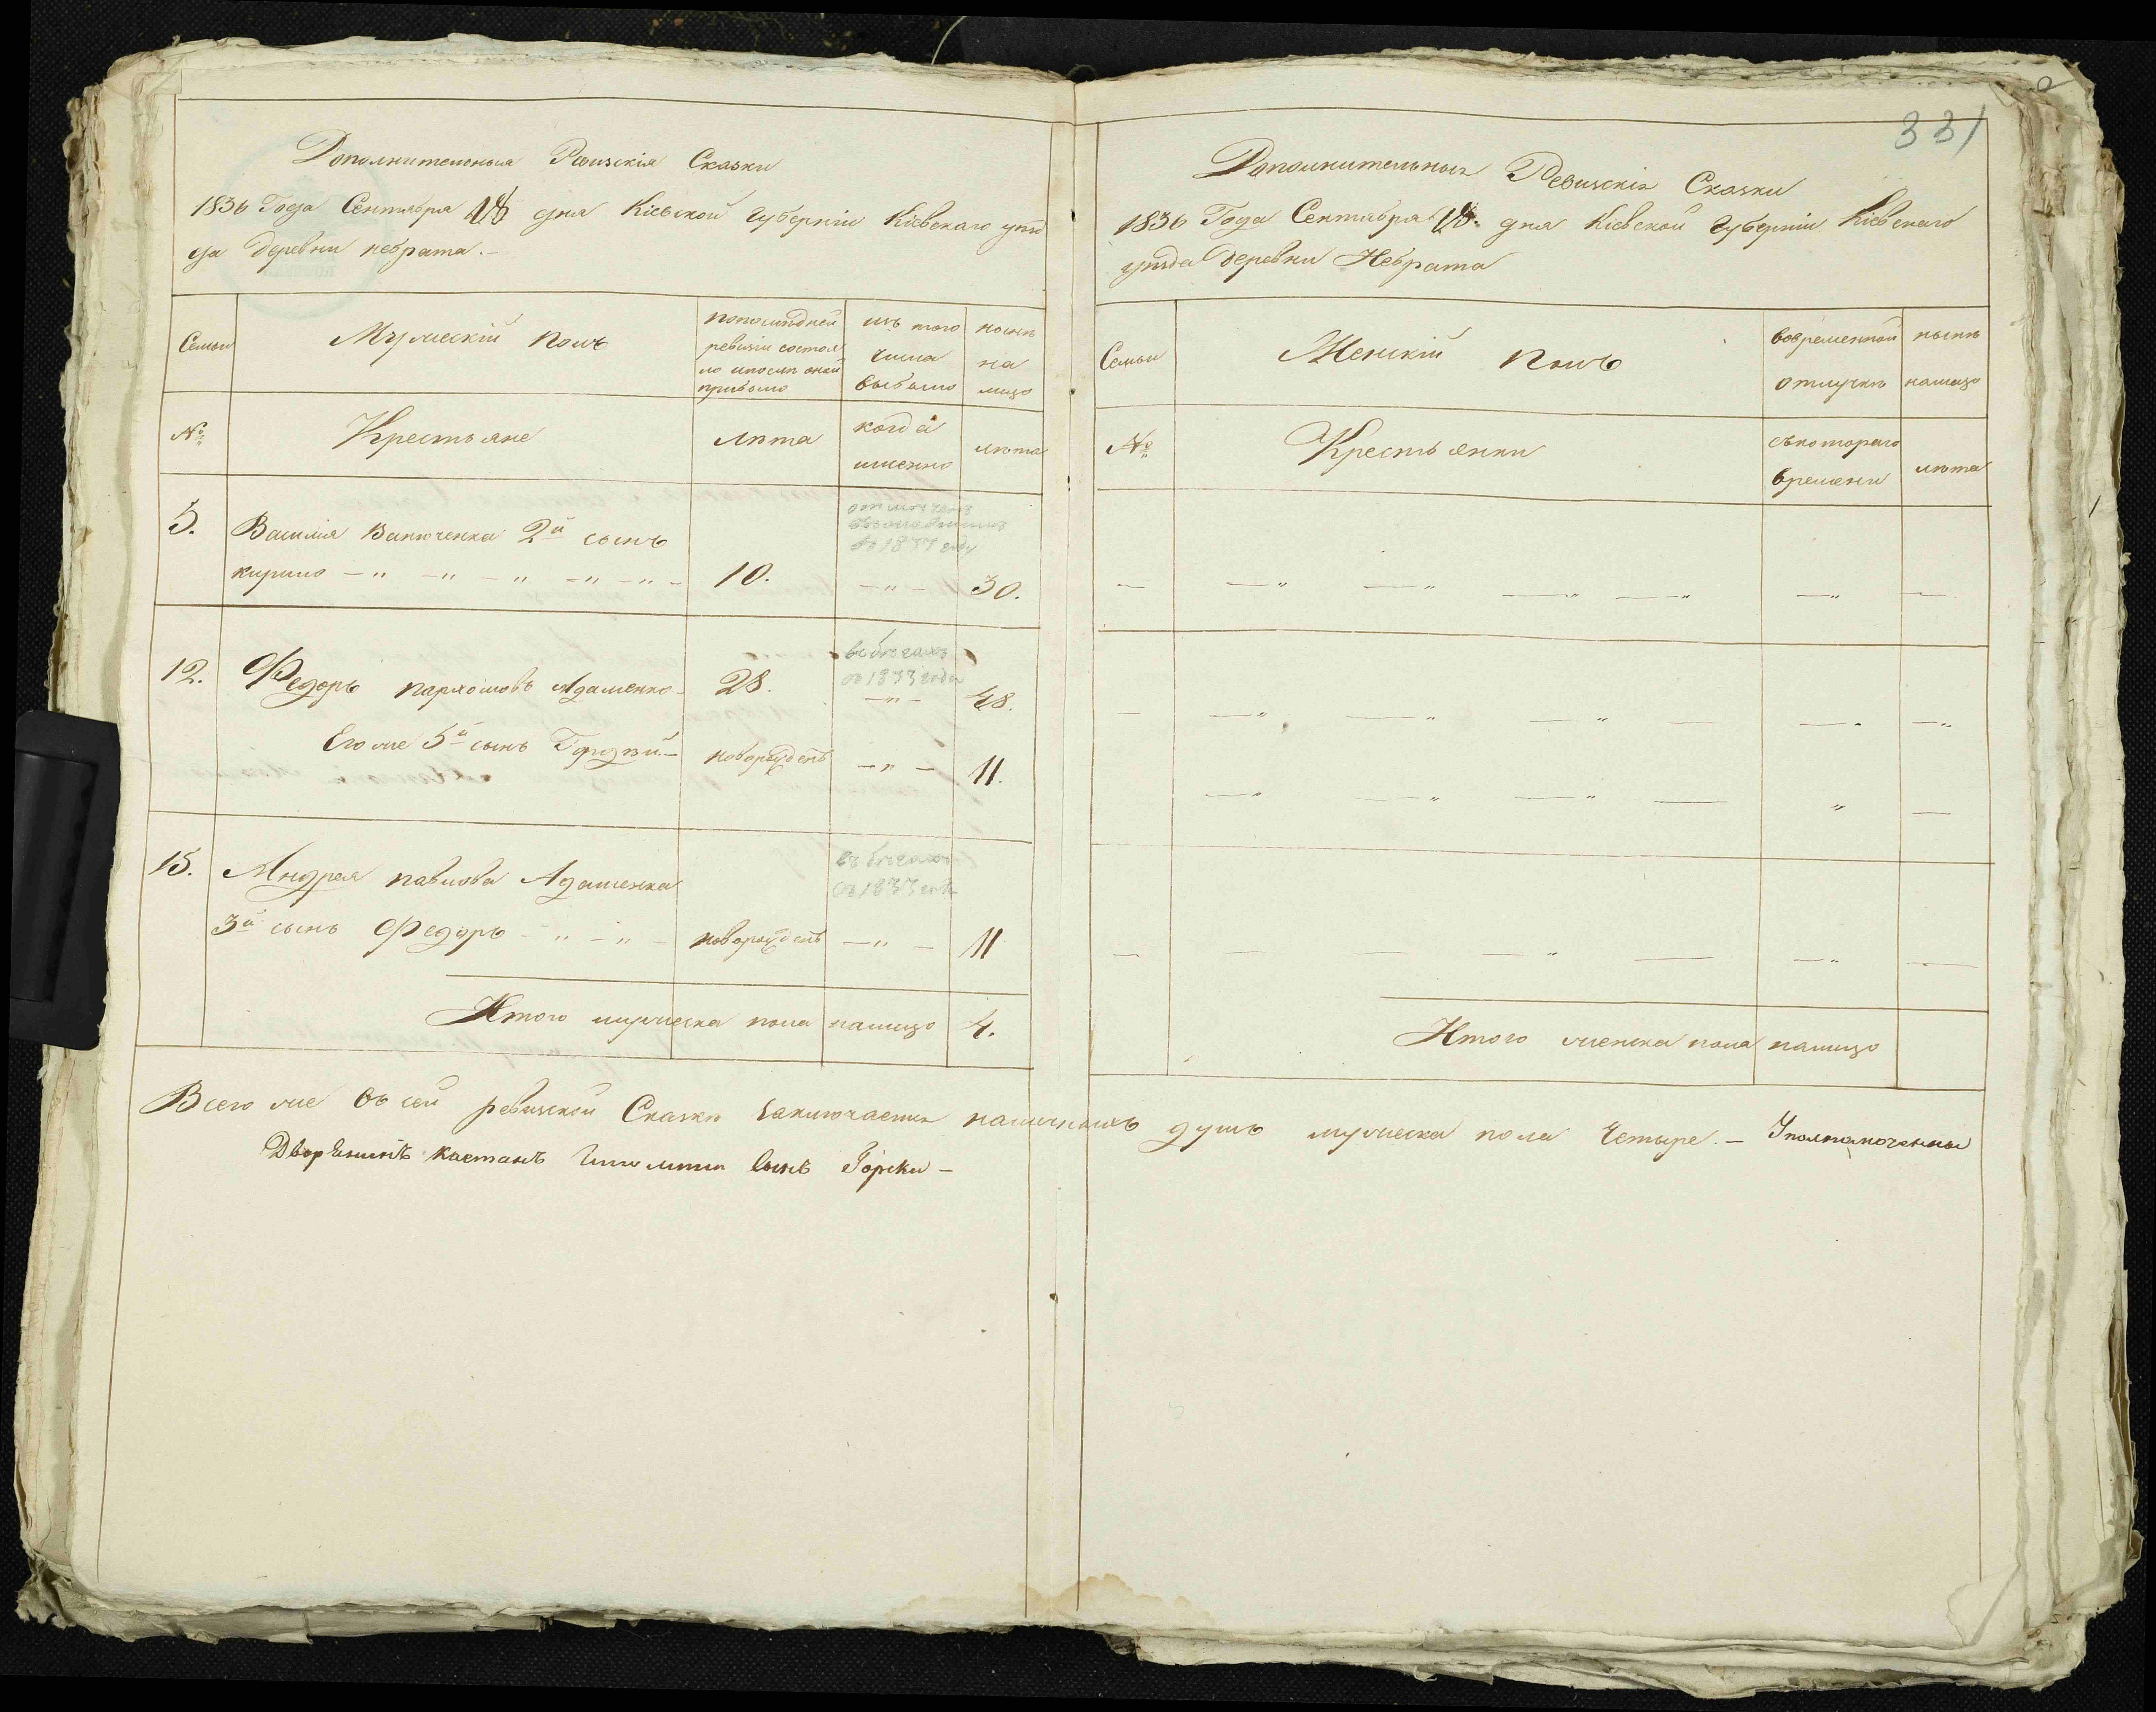 331
Дополнительныя Ревизскія Сказки
1836 Года Сентября 18 дня Кіевской Губерніи Кіевскаго уѣз
да деревни неврата.-
Семьи
Мужескій полъ
по последней
ревизіи состоя
ло и после оной
прибыло
изъ того
числа
выбыло
нынѣ
на
лицо
№
Крестьяне
лѣта
когда
именно
лѣта
5. Василія Ванюченка 2й сынъ
кирило 10. 30.
въ 1833 году
12. Федоръ пархомовъ Адаменко 28. 48.
въ бѣгахъ
съ 1833 года
Его же 5й сынъ новорожденъ 11.
15. Андрея павлова Адаменка
въ бѣгахъ
съ 1833 года
3й сынъ Федоръ новорожденъ 11
Итого мужеска пола налицо 4.
Дополнительныя Ревизскія Сказки
1836 Года Сентября 18. дня Кіевской Губерніи Кіевскаго
уѣзда деревни Неврата
Семьи
Женскій полъ
во временной
отлучкѣ
нынѣ
налицо
№
Крестьянки
съ котораго
времени
лѣта
Итого женска пола налицо
Всего же въ сей ревизской Сказкѣ заключается наличныхъ душъ мужеска пола Четыре. - Уполномоченный
Дворянинъ сынъ Горски -